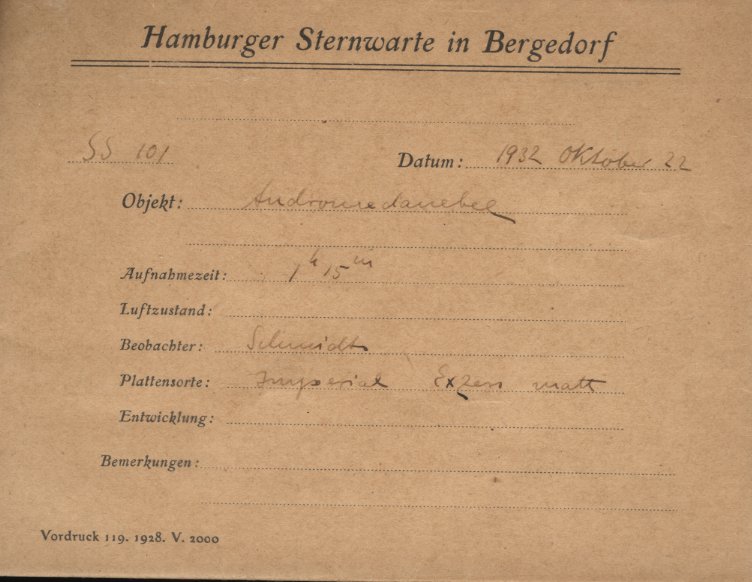 Hamburger Sternwarte in Bergedorf
SS 101 Datum: 1932 Oktober 22
Objekt: Andromedanebel
Aufnahmezeit: 1h 15m
Luftzustand:
Beobachter: Schmidt
Plattensorte: Imperial matt
Entwicklung:
Bemerkungen:
Vordruck 119. 1928. V. 2000